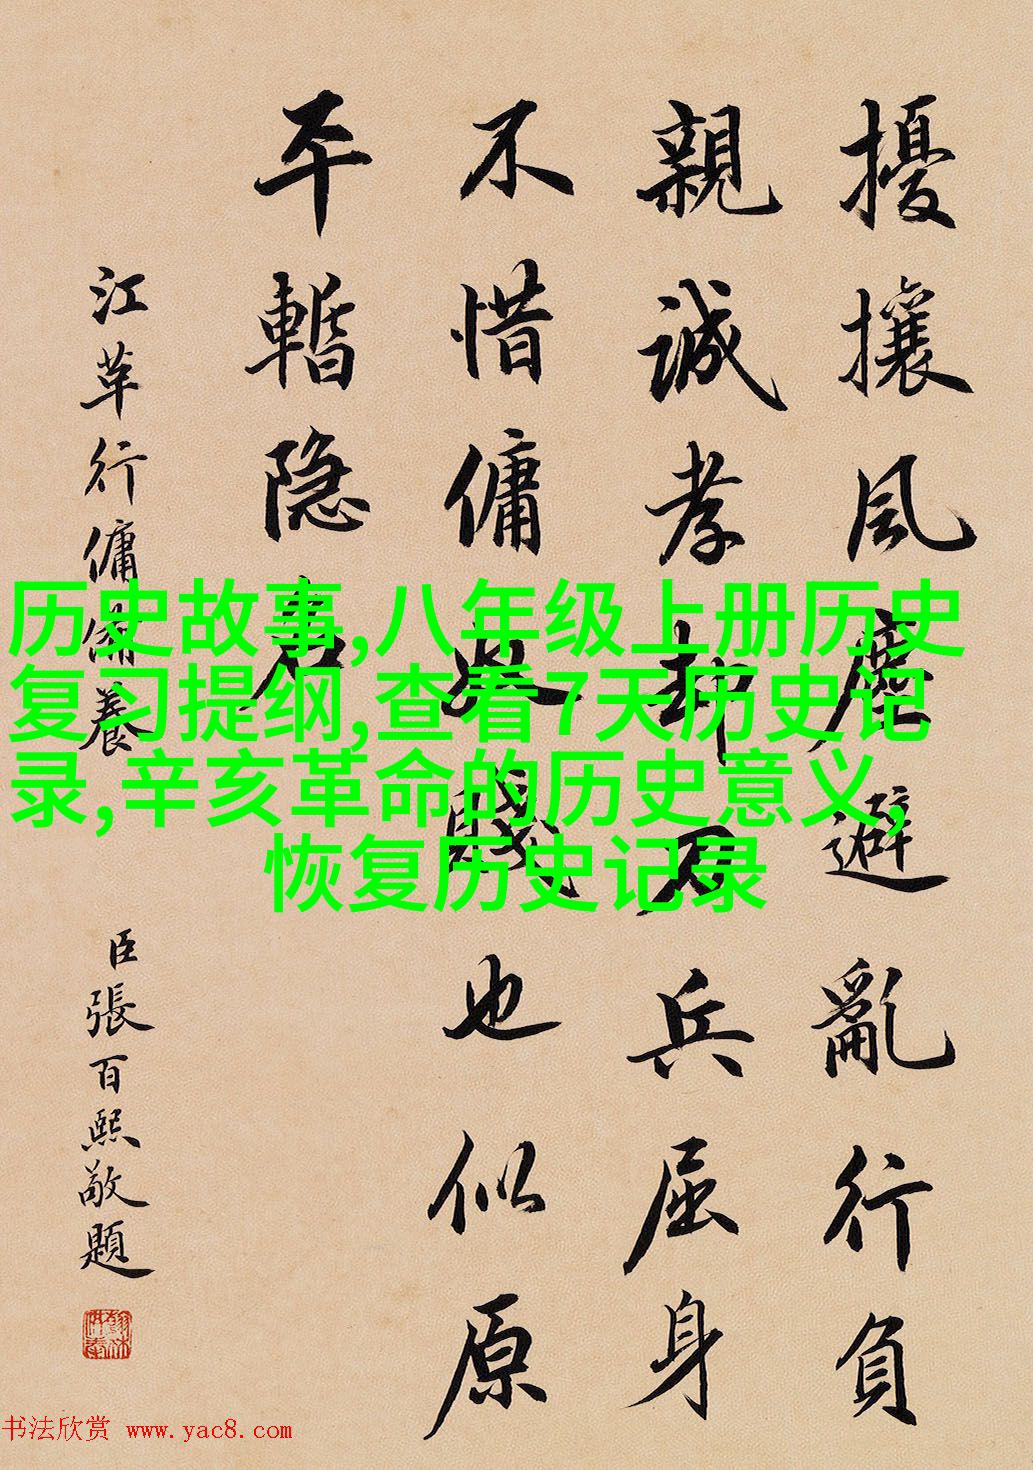 擾攘風塵避亂行負
親誠孝却刀兵屈身
不惜傭與賤也似原
平暫隐名
江革行傭備養
臣張百熙敬題
历史故事,八年级上册历史
复习提纲,查看7天历史记
录,辛亥革命的历史意义,
恢复历史记录
书法欣赏 www.yac8.com